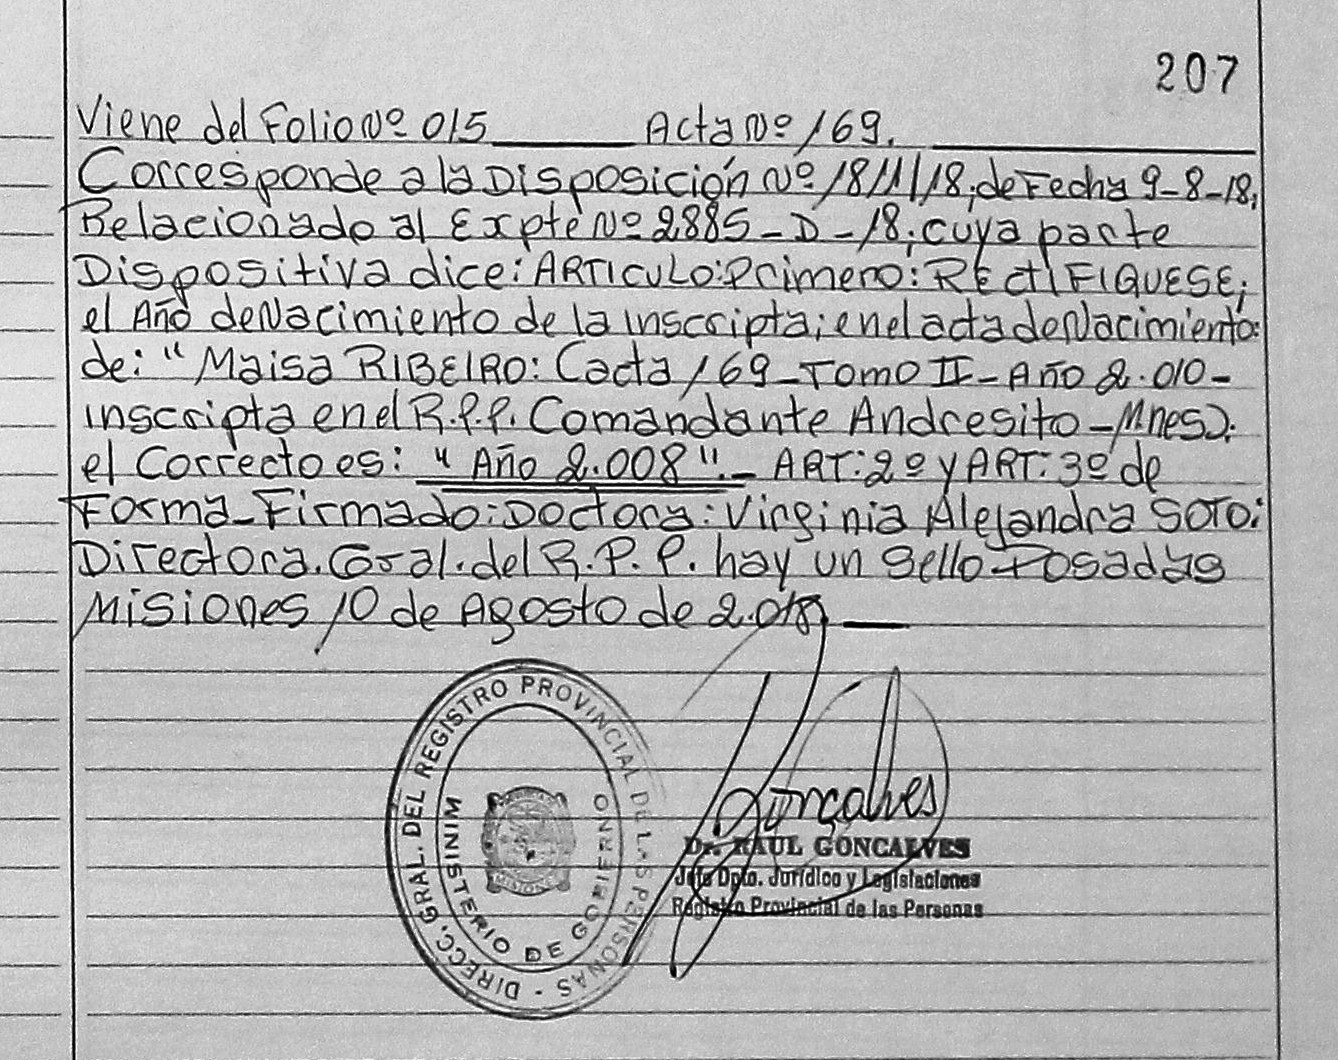 207
Viene del Folio Nº 015 Acta Nº 169.
Corresponde a la Disposición Nº 1811/18; de Fecha 9-8-18,
Relacionado al Expte Nº 2885-D-18; cuya parte
Dispositiva dice: ARTICULO: Primero: RECTIFIQUESE;
el Año de Nacimiento de la inscripta; en el acta de Nacimiento:
de: "Maisa RIBEIRO: (acta 169-Tomo II-Año 2.010-
inscripta en el R.P.P. Comandante Andresito-Mnes).
el Correcto es: "Año 2.008".- ART: 2º y ART: 3º de
Forma-Firmado: Doctora: Virginia Alejandra SOTO:
Directora. Gral. del R.P.P. hay un Sello Posadas
Misiones 10 de Agosto de 2.018
DIRECC. GRAL. DEL REGISTRO PROVINCIAL DE LAS PERSONAS -
MINISTERIO DE GOBIERNO
MISIONES
Gonçalves
Dr. RAUL GONCALVES
Jefe Dpto. Jurídico y Legislaciones
Registro Provincial de las Personas